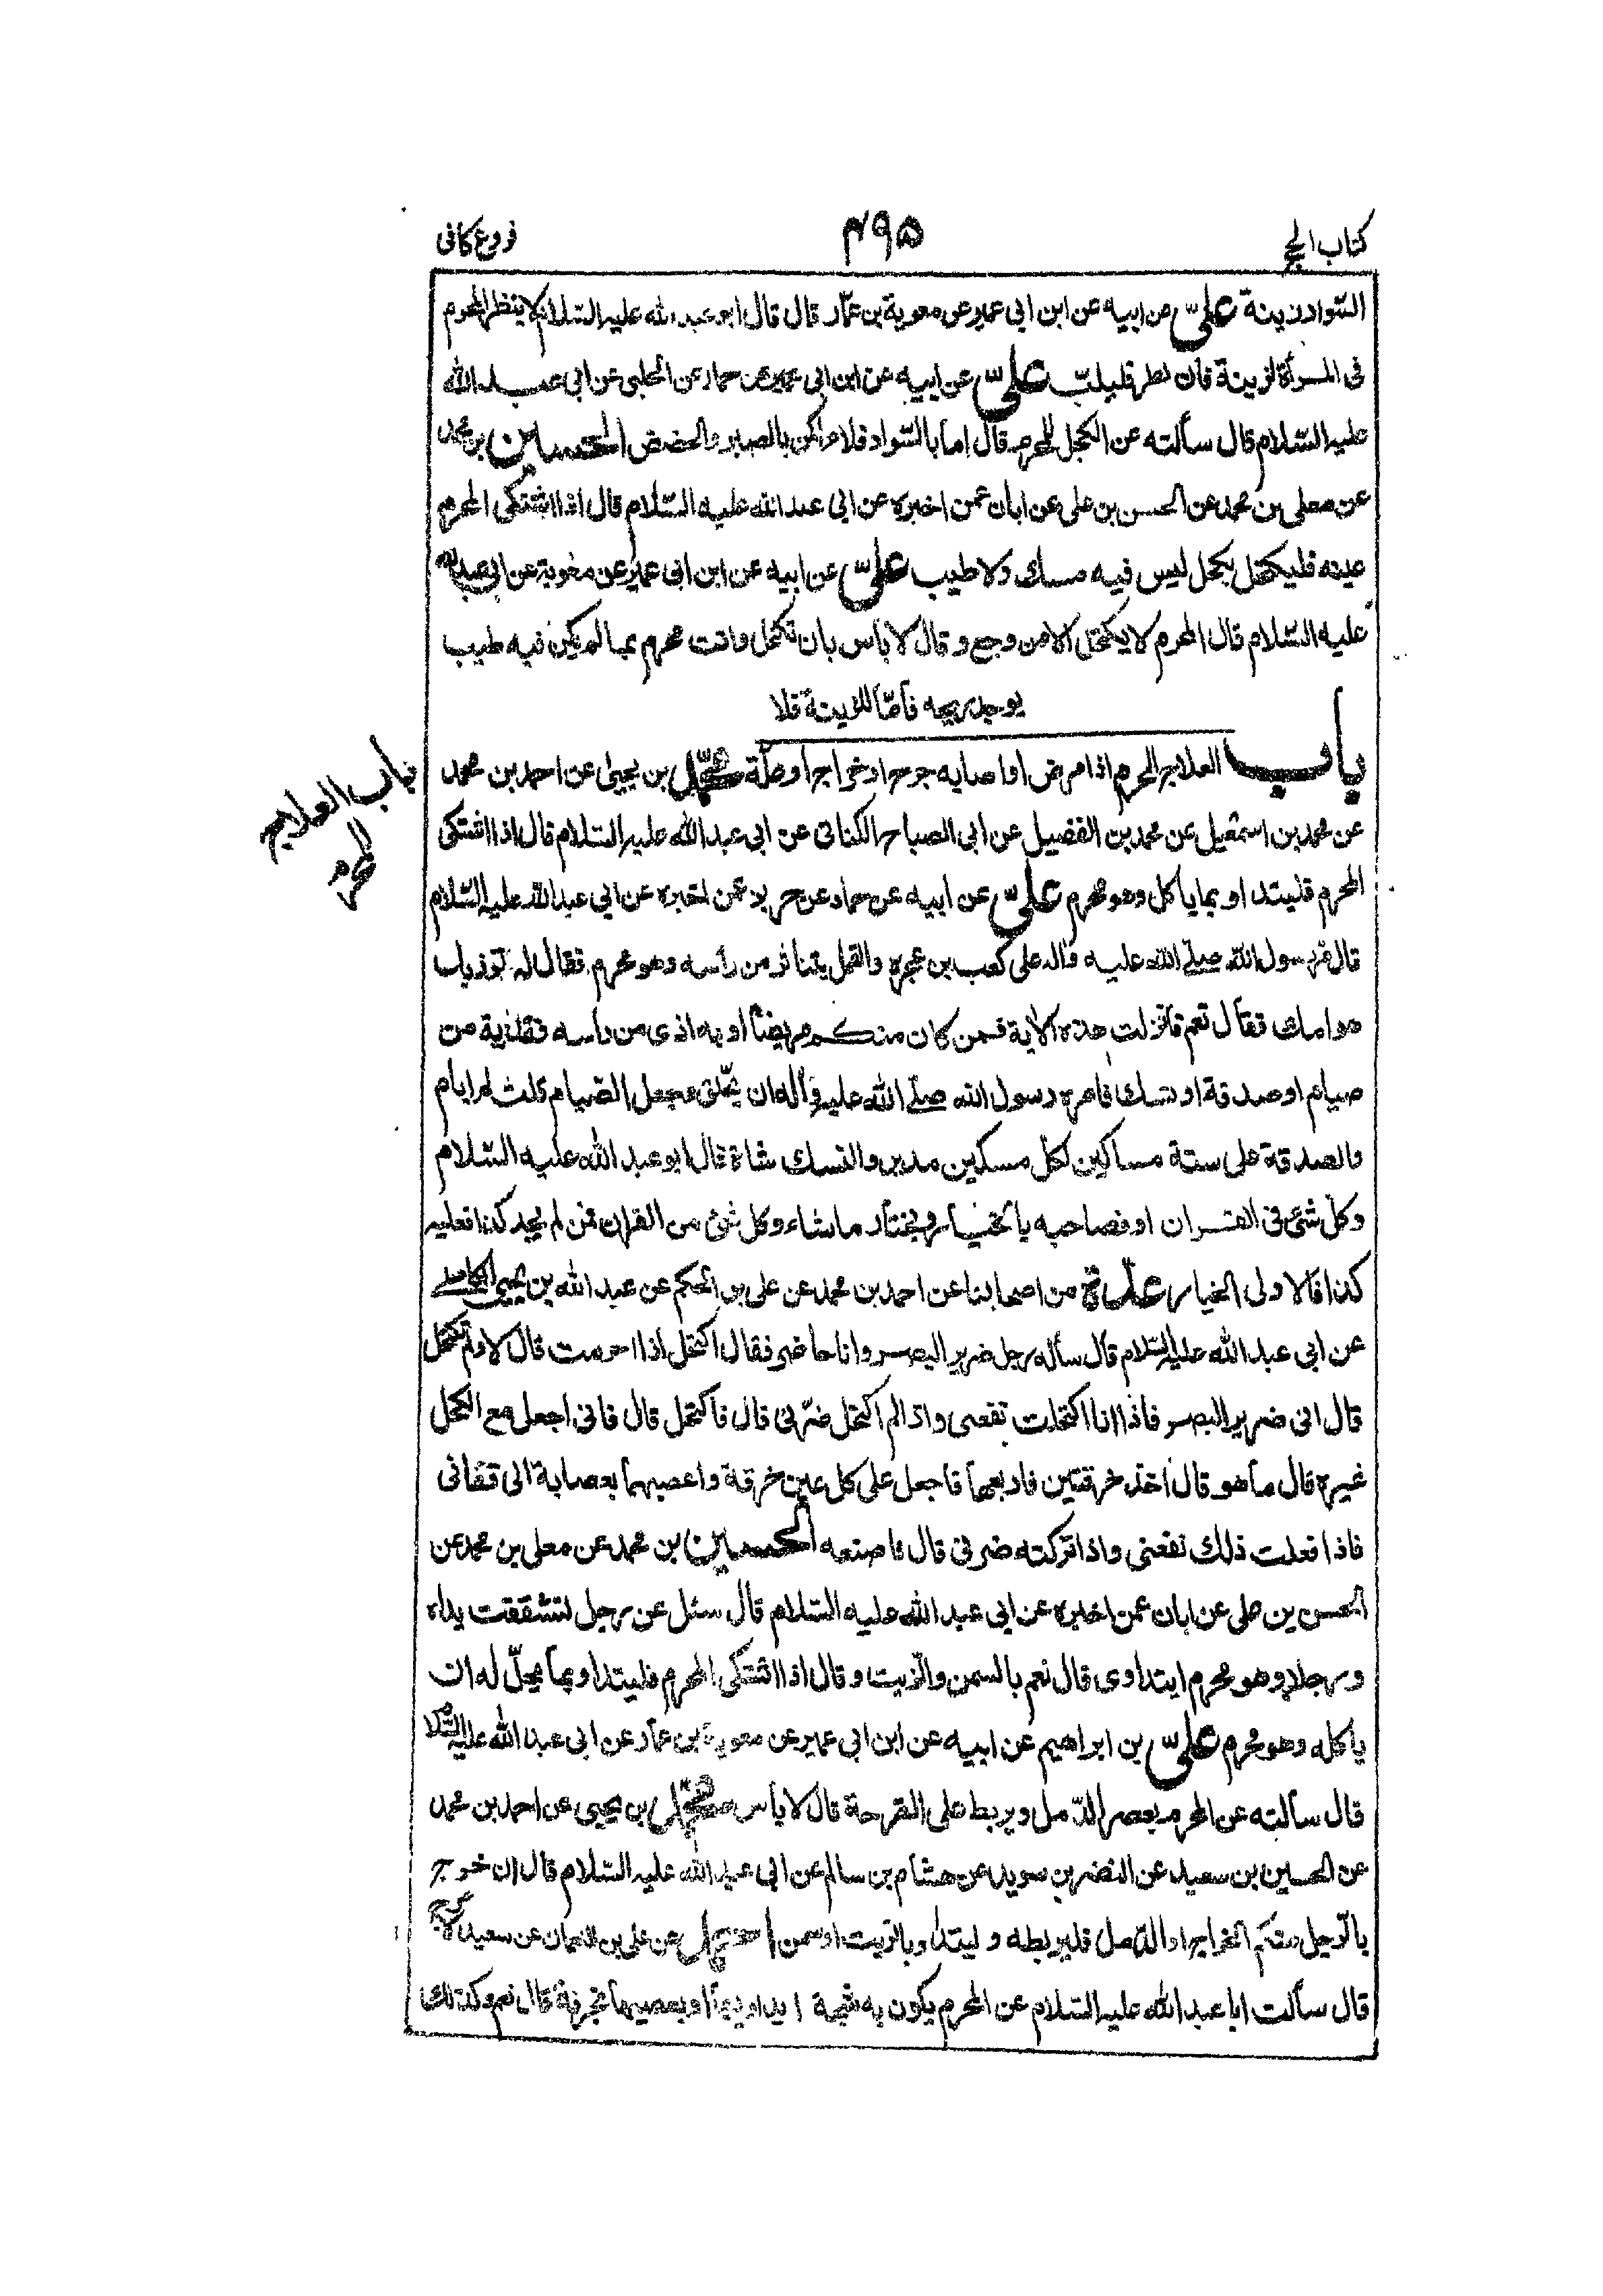 كتاب الحج
۴۹۵
فروع كافى
السّواد زينة علىّ عن ابيه عن ابن ابى عمير عن معوية بن عمّار قال قال ابو عبد الله عليه السّلام لا ينظر المحرم
فى المرأة لزينة فان نظر فليلبّ علىّ عن ابيه عن ابن ابى عمير عن حماد عن الحلبى عن ابى عبد الله
عليه السّلام قال سألته عن الكحل للمحرم قال اما بالسّواد فلا ولكن بالصبر والحضض الحسين بن محمد
عن معلى بن محمد عن الحسن بن على عن ابان عمن اخبره عن ابى عبد الله عليه السّلام قال اذا اشتكى المحرم
عينه فليكتحل بكحل ليس فيه مسك ولا طيب علىّ عن ابيه عن ابن ابى عمير عن معوية عن ابى عبد الله
عليه السّلام قال المحرم لا يكتحل الا من وجع و قال لا باس بان تكتحل وانت محرم بما لم يكن فيه طيب
يوجد ريحه فامّا للزينة فلا
باب العلاج للمحرم اذا مرض او اصابه جرح او خراج او علّة محمّد بن يحيى عن احمد بن محمد
باب العلاج
للمحرم
عن محمد بن اسمعيل عن محمد بن الفضيل عن ابى الصباح الكنانى عن ابى عبد الله عليه السّلام قال اذا اشتكى
المحرم فليتداو بما ياكل وهو محرم علىّ عن ابيه عن حماد عن حريز عمن اخبره عن ابى عبد الله عليه السّلام
قال مر رسول الله صلّى الله عليه واله على كعب بن عجره والقمل يتناثر من رأسه وهو محرم فقال له توذيك
هوامك فقال نعم فانزلت هذه الاية فمن كان منكم مريضاً او به اذى من راسه ففدية من
صيام او صدقة او نسك فامره رسول الله صلّى الله عليه وآله ان يحلق وجعل الصّيام ثلثه ايام
والصدقة على ستة مساكين لكل مسكين مدين والنسك شاة قال ابو عبد الله عليه السّلام
وكل شئ فى القران او فصاحبه بالخيار يختار ما شاء وكل شئ من القران فمن لم يجد كذا فعليه
كذا فالاولى الخيار عدّة من اصحابنا عن احمد بن محمد عن على بن الحكم عن عبد الله بن يحيى الكاهلى
عن ابى عبد الله عليه السّلام قال سأله رجل ضرير البصر وانا حاضر فقال اكتحل اذا احرمت قال لا ولم تكتحل
قال انى ضرير البصر فاذا انا اكتحلت نفعنى واذا لم اكتحل ضرّنى قال فاكتحل قال فانى اجعل مع الكحل
غيره قال ما هو قال اخذ خرقتين فاربعهما فاجعل على كل عين خرقة واعصبهما بعصابة الى قفائى
فاذا فعلت ذلك نفعنى واذا تركته ضرنى قال فاصنعه الحسين بن محمد عن معلى بن محمد عن
الحسن بن على عن ابان عمن اخبره عن ابى عبد الله عليه السّلام قال سئل عن رجل تشققت يداه
ورجلاه وهو محرم ايتداوى قال نعم بالسمن والزّيت وقال اذا اشتكى المحرم فليتداو بما يحلّ له ان
ياكله وهو محرم علىّ بن ابراهيم عن ابيه عن ابن ابى عمير عن معوية بن عمار عن ابى عبد الله عليه السّلام
قال سألته عن المحرم يعصر الدّمل ويربط على القرحة قال لا باس محمّد بن يحيى عن احمد بن محمد
عن الحسين بن سعيد عن النضر بن سويد عن هشام بن سالم عن ابى عبد الله عليه السّلام قال ان خرج
بالرّجل منكم الخراج او الدّمل فليربطه و ليتداو بالزيت او سمن احمد عن على بن النعمان عن سعيد الاعرج
قال سألت ابا عبد الله عليه السّلام عن المحرم يكون به شجة ايداويها او يعصبها بخرقة قال نعم وكذلك